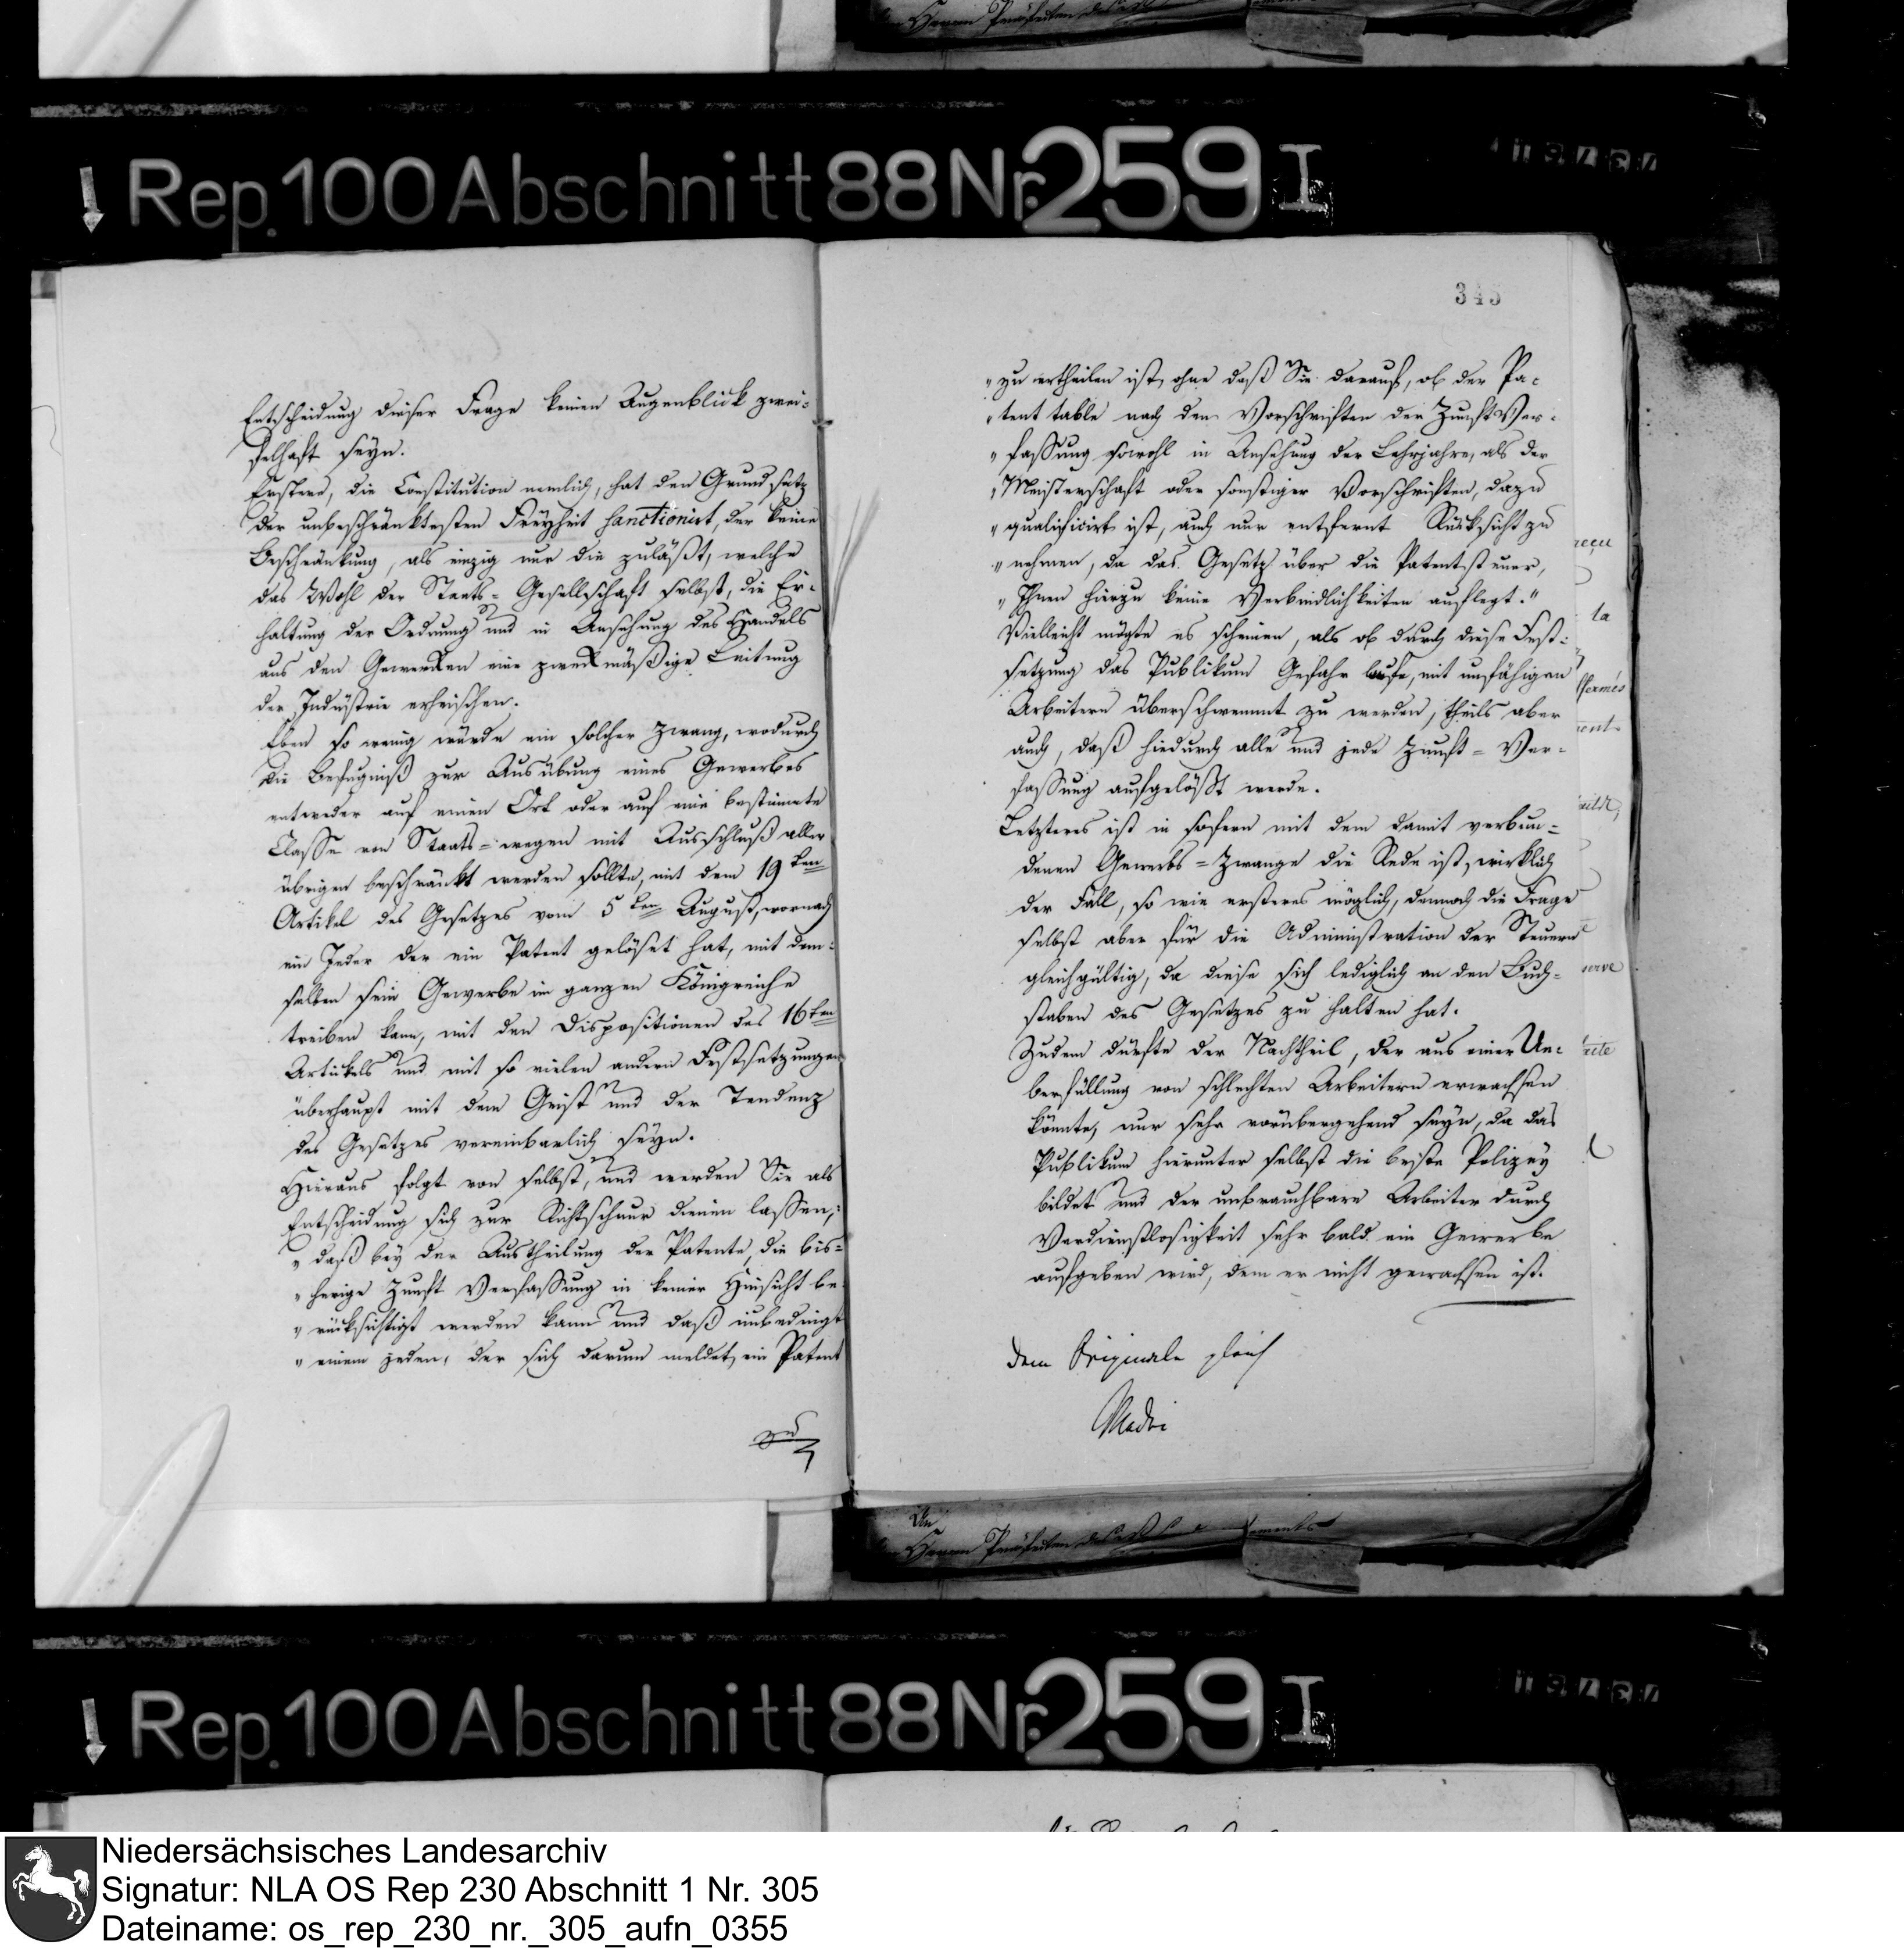 Rep. 100 Abschnitt 88 Nr. 259 I
345
Entscheidung dieser Frage keinen Augenblick zwei-
felhaft seyn.
Erstere, die Constitution nemlich, hat den Grundsatz
der unbeschränktesten Freyheit sanctionirt, der keine
Beschränkung, als einzig nur die zuläßt, welche
das Wohl der Staats-Gesellschaft selbst, die Er-
haltung der Ordnung und in Ansehung des Handels
aus den Gewerken eine zwekmäßige Leitung
der Industrie erheischen.
Eben so wenig würde ein solcher Zwang, wodurch
die Befugniß zur Ausübung eines Gewerbes
entweder auf einen Ort oder auf eine bestimmte
Classe von Staats-wegen mit Ausschluß aller
übrigen beschränkt werden sollte, mit dem 19ten
Artikel des Gesetzes vom 5ten August, wornach
ein Jeder der ein Patent gelöset hat, mit dem-
selben sein Gewerbe im ganzen Königreiche
treiben kann, mit den Dispositionen des 16ten
Artickels und mit so vielen andern Festsetzungen
überhaupt mit dem Geist und der Tendenz
des Gesetzes vereinbarlich seyn.
Hieraus folgt von selbst, und werden Sie als
Entscheidung sich zur Richtschnur dienen lassen,:
„daß bey der Austheilung der Patente, die bis-
„herige Zunft Verfassung in keiner Hinsicht be-
„rücksichtigt werden kann und daß unbedingt
„einem jeden, der sich darum meldet, ein Patent
zu
„zu ertheilen ist, ohne daß Sie darauf, ob der Pa-
„tent table nach den Vorschriften der Zunft Ver-
„fassung sowohl in Ansehung der Lehrjahre, als der
„Meisterschaft oder sonstiger Vorschriften, dazu
„qualificirt ist, auch nur entfernt Rücksicht zu
„nehmen, da das Gesetz über die Patentsteuer,
„Ihnen hierzu keine Verbindlichkeiten auflegt.“
Vielleicht mögte es scheinen, als ob durch diese Fest-
setzung das Publikum Gefahr laufe, mit unfähigen
Arbeitern überschwemmt zu werden, theils aber
auch, daß hiedurch alle und jede Zunft-Ver-
fassung aufgelößt werde.
Letzteres ist in sofern mit dem damit verbun-
denen Gewerbs-Zwange die Rede ist, wirklich
der Fall, so wie ersteres möglich, dennoch die Frage
selbst aber für die Administration der Steuern
gleichgültig, da diese sich lediglich an den Buch-
staben des Gesetzes zu halten hat.
Zudem dürfte der Nachtheil, der aus einer Ue-
berfüllung von schlechten Arbeitern erwachsen
könnte, nur sehr vorübergehend seyn, da das
Publikum hierunter selbst die beste Polizey
bildet und der unbrauchbare Arbeiter durch
Verdienstlosigkeit sehr bald ein Gewerbe
aufgeben wird, dem er nicht gewachsen ist.
dem Originale gleich
reçu
ta
serve
An
Herrn Präfecten des
Rep. 100 Abschnitt 88 Nr. 259 I
Niedersächsisches Landesarchiv
Signatur: NLA OS Rep 230 Abschnitt 1 Nr. 305
Dateiname: os_rep_230_nr._305_aufn_0355